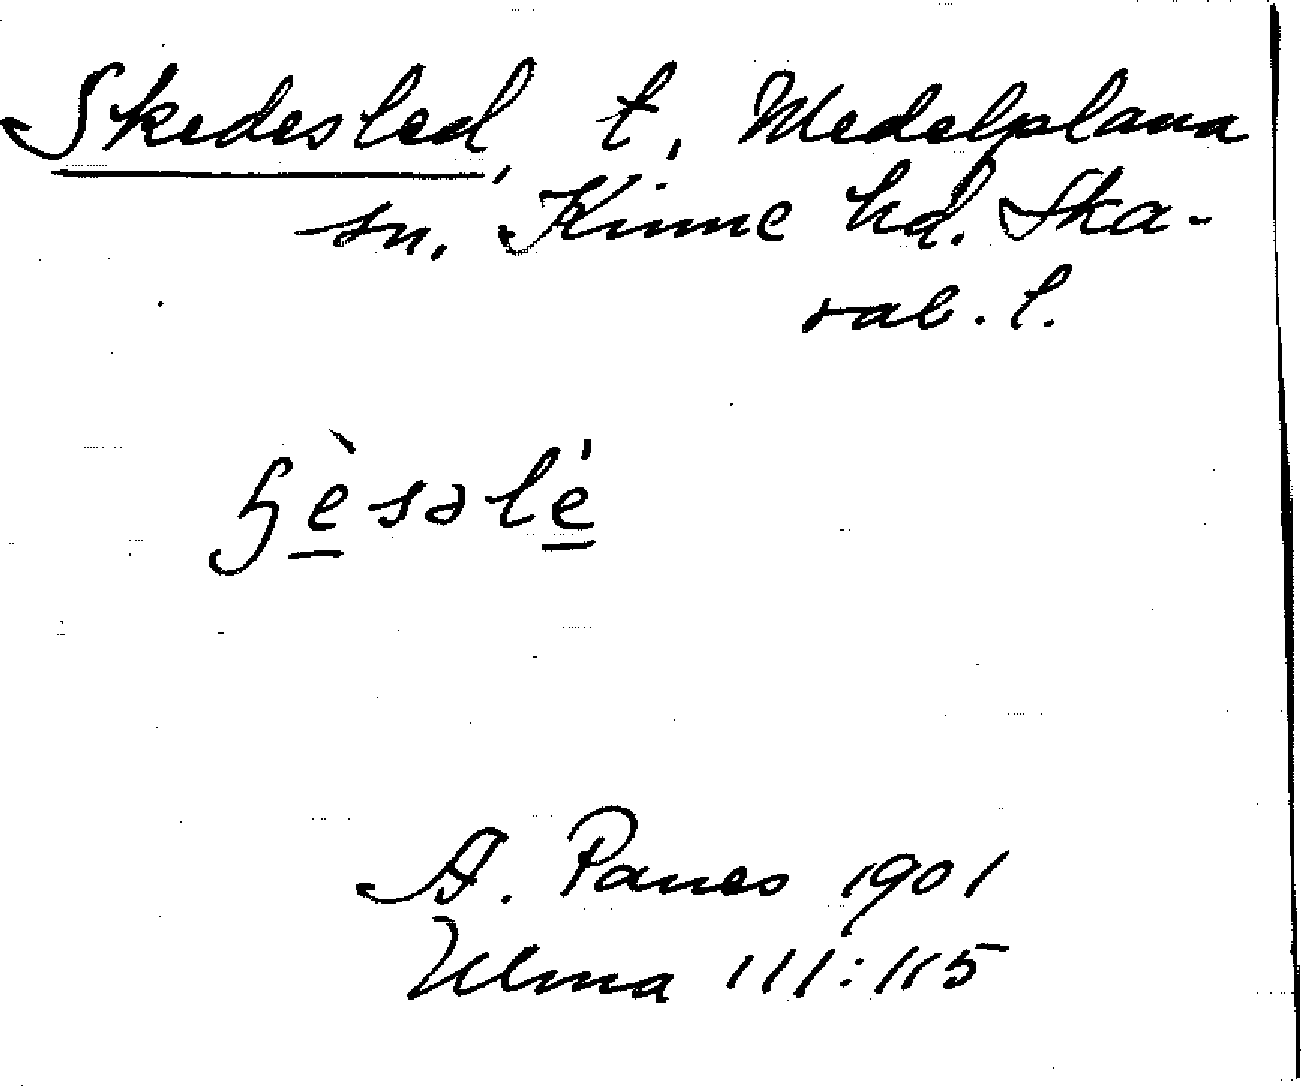 Skedesled, t, Medelplana
sn. Kinne hd. Ska-
rab. l.
ꜧè̠səlé̠
A. Panes 1901
Ulma 111:115